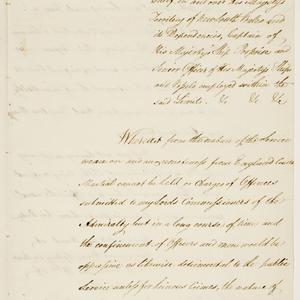 Chief, in and over His Majestys
Territory of New South Wales and
its Dependencies, Captain of
His Majestys Ship Porpoise and
Senior Officer of His Majestys Ships
and Vessels employed within the
said Limits. &c &c &c
Whereas from the nature of the Service
we are on and our remoteness from England Courts
Martial cannot be held or Charges of Offences
submitted to my Lords Commissioners of the
Admiralty but in a long course of time and
the confinement of Officers and men would be
oppressive as likewise detrimental to the public
Service unless for heinous Crimes, the nature of